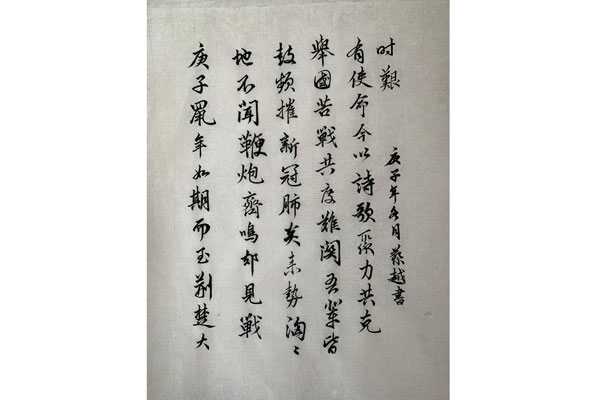 庚子鼠年如期而至荆楚大
地不聞鞭炮齊鳴却見戰
鼓頻摧新冠肺炎来勢洶〻
舉國苦戰共度難関吾輩皆
有使命今以詩歌聚力共克
时艱
庚子年冬月蔡越書